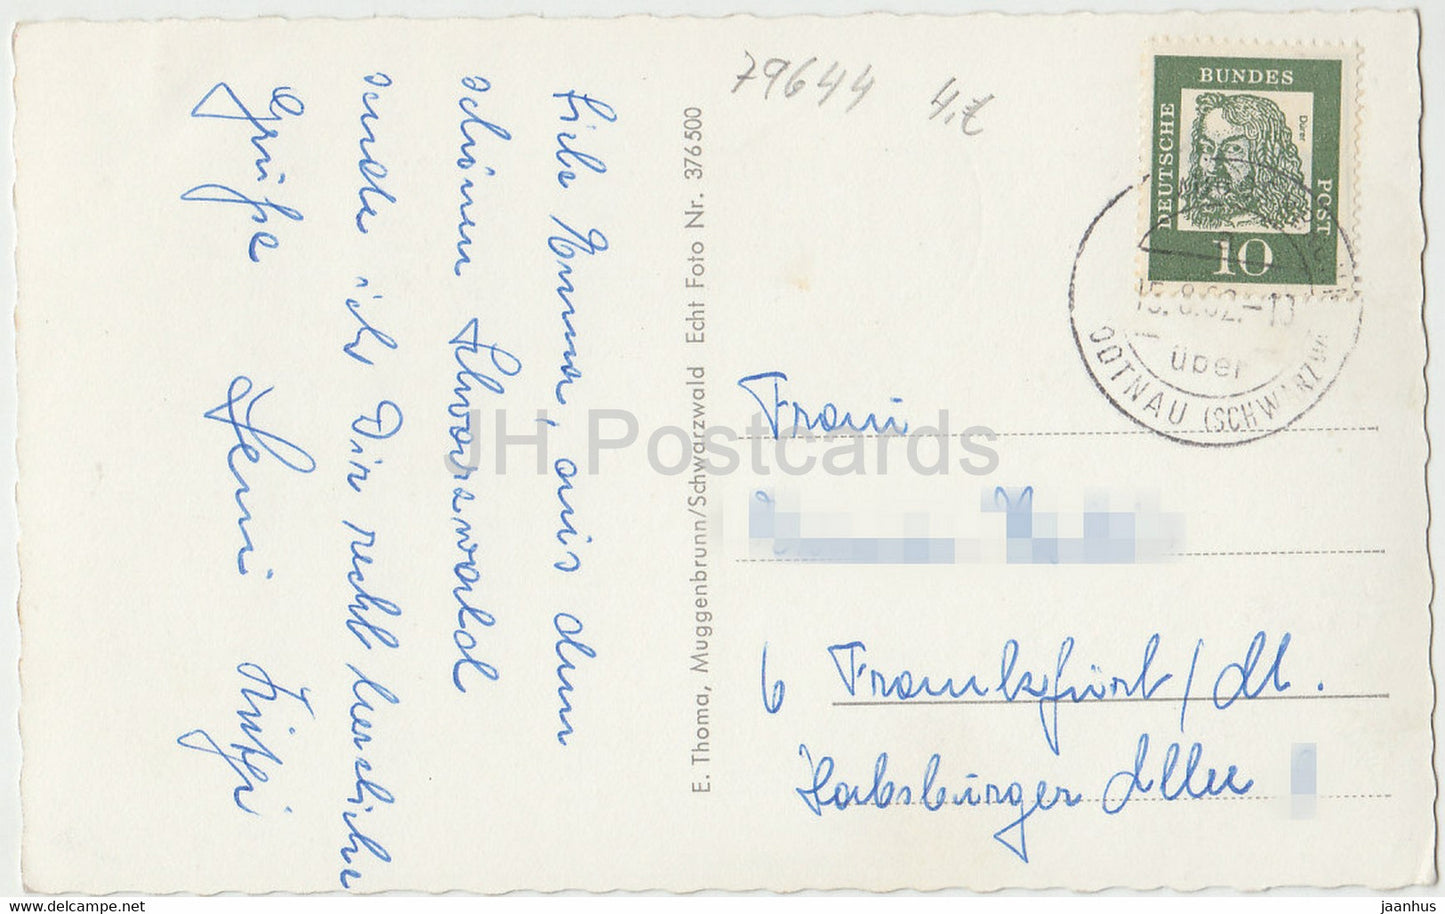 79644 4.-
BUNDES
DEUTSCHE
POST
Dürer
10
15.8.62.-13
über
TODTNAU (SCHWARZW
Liebe Numma, aus dem
schönen Schwarzwald
sende ich Dir recht herzliche
Grüße
E. Thoma, Muggenbrunn/Schwarzwald Echt Foto Nr. 376500
Frau
6 Frankfurt/M.
Habsburger Allee
JH Postcards
www.delcampe.net
jaanhus